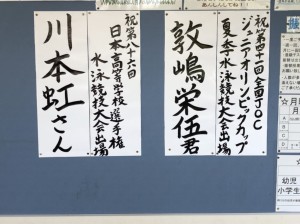 祝第四十一回全国JOC
ジュニアオリンピックカップ
夏季水泳競技大会出場
敦嶋栄伍君
祝第八十六回
日本高等学校選手権
水泳競技大会出場
川本虹さん
あんしんしてね！！
幼児
小学生